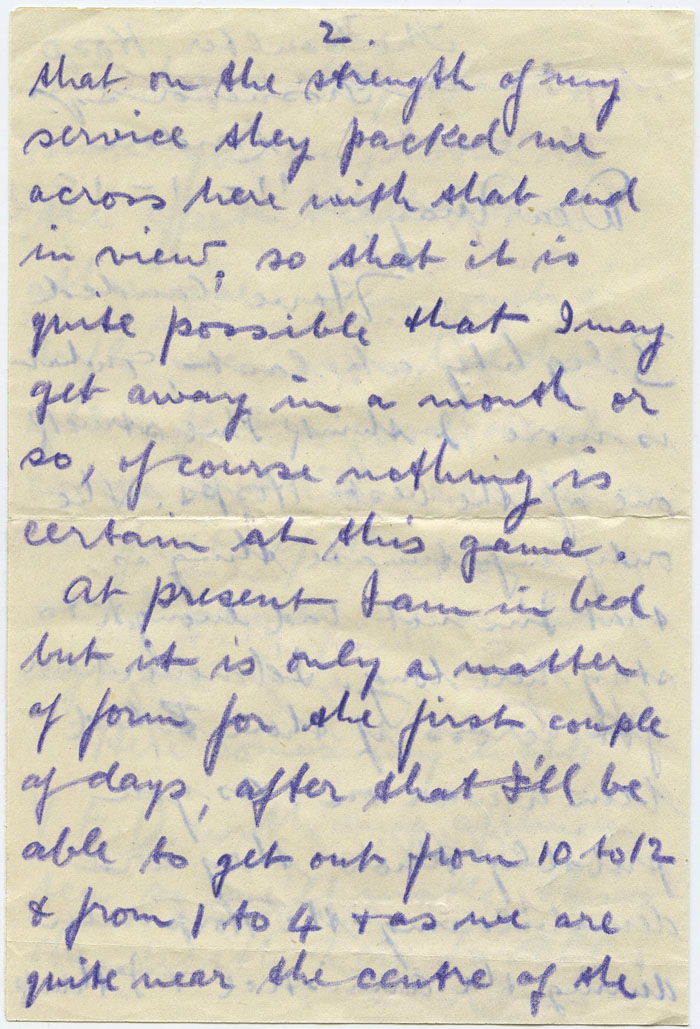 2.
that on the strength of my
service they packed me
across here with that end
in view, so that it is
quite possible that I may
get away in a month or
so, of course nothing is
certain at this game.
At present I am in bed
but it is only a matter
of form for the first couple
of days, after that I'll be
able to get out from 10 to 12
& from 1 to 4 & as we are
quite near the centre of the